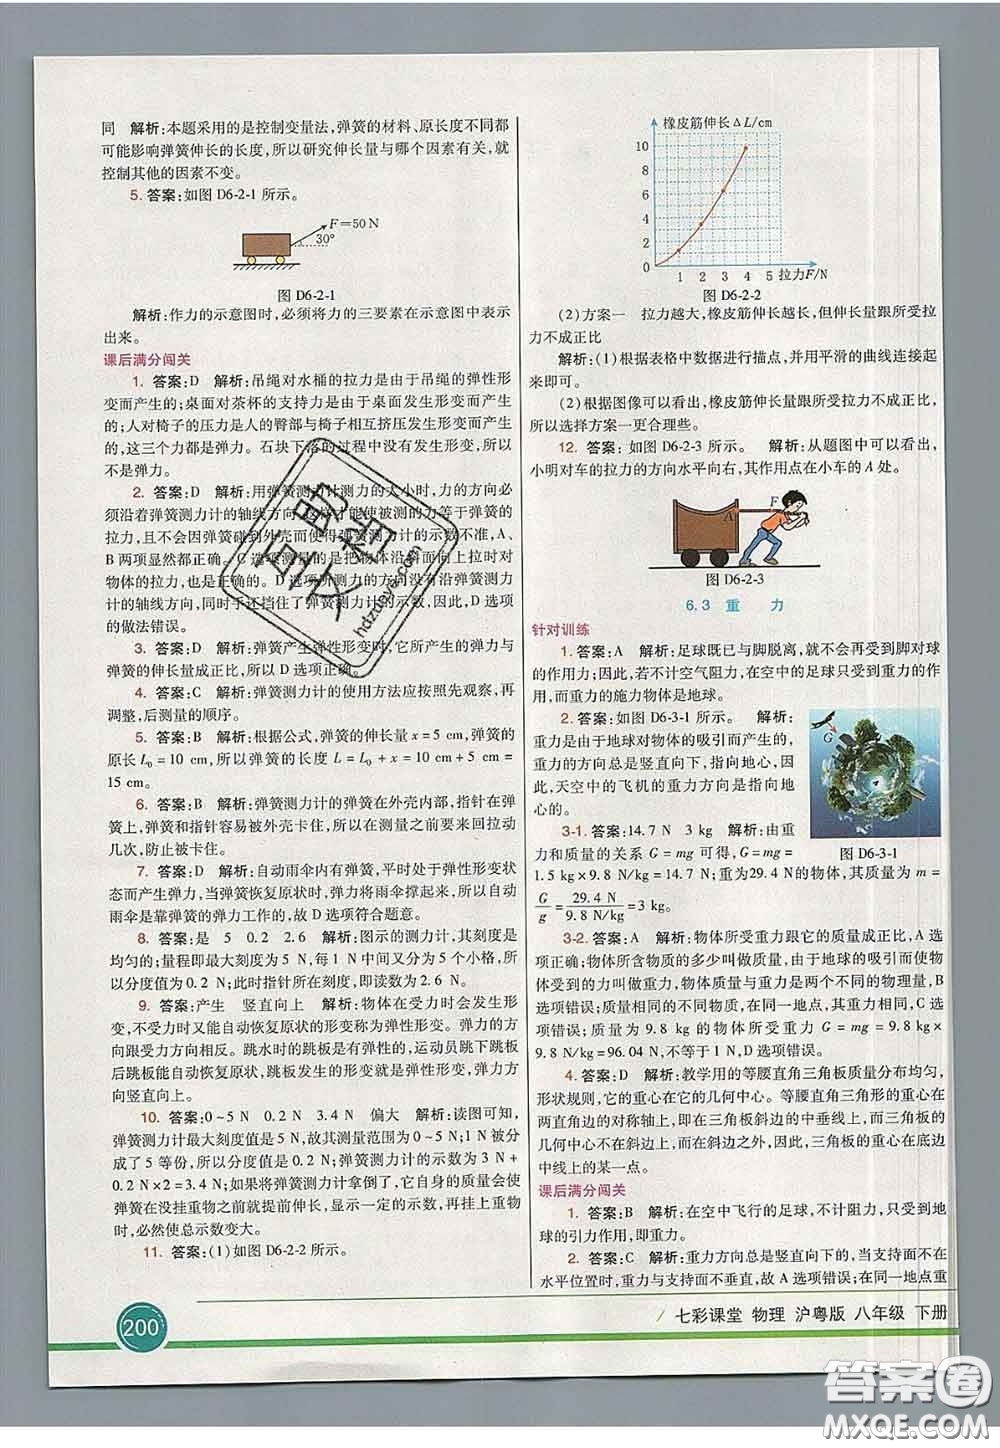 同　解析:本题采用的是控制变量法,弹簧的材料、原长度不同都
可能影响弹簧伸长的长度,所以研究伸长量与哪个因素有关,就
控制其他的因素不变。
5. 答案:如图 D6-2-1 所示。
F=50 N
30°
图 D6-2-1
解析:作力的示意图时,必须将力的三要素在示意图中表示
出来。
课后满分闯关
1. 答案:D　解析:吊绳对水桶的拉力是由于吊绳的弹性形
变而产生的;桌面对茶杯的支持力是由于桌面发生形变而产生
的;人对椅子的压力是人的臀部与椅子相互挤压发生形变而产生
的,这三个力都是弹力。石块下落的过程中没有发生形变,所以
不是弹力。
2. 答案:D　解析:用弹簧测力计测力的大小时,力的方向必
须沿着弹簧测力计的轴线方向,这样才能使被测的力等于弹簧的
拉力,且不会因弹簧碰到外壳而使得弹簧测力计的示数不准,A、
B 两项显然都正确。C 选项测量的是把物体沿斜面向上拉时对
物体的拉力,也是正确的。D 选项用力的方向没有沿弹簧测力
计的轴线方向,同时手还挡住了弹簧测力计的示数,因此,D 选项
的做法错误。
3. 答案:D　解析:弹簧产生弹性形变时,它所产生的弹力与
弹簧的伸长量成正比,所以 D 选项正确。
4. 答案:C　解析:弹簧测力计的使用方法应按照先观察,再
调整,后测量的顺序。
5. 答案:B　解析:根据公式,弹簧的伸长量 x=5 cm,弹簧的
原长 L₀=10 cm,所以弹簧的长度 L=L₀+x=10 cm+5 cm=
15 cm。
6. 答案:B　解析:弹簧测力计的弹簧在外壳内部,指针在弹
簧上,弹簧和指针容易被外壳卡住,所以在测量之前要来回拉动
几次,防止被卡住。
7. 答案:D　解析:自动雨伞内有弹簧,平时处于弹性形变状
态而产生弹力,当弹簧恢复原状时,弹力将雨伞撑起来,所以自动
雨伞是靠弹簧的弹力工作的,故 D 选项符合题意。
8. 答案:是　5　0.2　2.6　解析:图示的测力计,其刻度是
均匀的;量程即最大刻度为 5 N,每 1 N 中间又分为 5 个小格,所
以分度值为 0.2 N;此时指针所在刻度,即读数为 2.6 N。
9. 答案:产生　竖直向上　解析:物体在受力时会发生形
变,不受力时又能自动恢复原状的形变称为弹性形变。弹力的方
向跟受力方向相反。跳水时的跳板是有弹性的,运动员跳下跳板
后跳板能自动恢复原状,跳板发生的形变就是弹性形变。弹力方
向竖直向上。
10. 答案:0~5 N　0.2 N　3.4 N　偏大　解析:读图可知,
弹簧测力计最大刻度值是 5 N,故其测量范围为 0~5 N;1 N 被分
成了 5 等份,所以分度值是 0.2 N;弹簧测力计的示数为 3 N+
0.2 N×2=3.4 N;如果将弹簧测力计拿倒了,它自身的质量会使
得在没挂重物之前就提前伸长,显示一定的示数,再挂上重物
时,必然使总示数变大。
11. 答案:(1)如图 D6-2-2 所示。
200
橡皮筋伸长ΔL/cm
10
8
6
4
2
0
1 2 3 4 5 拉力F/N
图 D6-2-2
(2)方案一　拉力越大,橡皮筋伸长越长,但伸长量跟所受拉
力不成正比
解析:(1)根据表格中数据进行描点,并用平滑的曲线连接起
来即可。
(2)根据图像可以看出,橡皮筋伸长量跟所受拉力不成正比,
所以选择方案一更合理些。
12. 答案:如图 D6-2-3 所示。　解析:从题图中可以看出,
小明对车的拉力的方向水平向右,其作用点在小车的 A 处。
A
F
图 D6-2-3
6.3　重　力
针对训练
1. 答案:A　解析:足球既已与脚脱离,就不会再受到脚对球
的作用力;因此,若不计空气阻力,在空中的足球只受到重力的作
用,而重力的施力物体是地球。
2. 答案:如图 D6-3-1 所示。　解析:
重力是由于地球对物体的吸引而产生的,重
力的方向总是竖直向下,指向地心,因
此,天空中的飞机的重力方向是指向地
心的。
G
图 D6-3-1
3-1. 答案:14.7 N　3 kg　解析:由重
力和质量的关系 G=mg 可得,G=mg=
1.5 kg×9.8 N/kg=14.7 N;重为29.4 N的物体,其质量 m=
G/g=29.4 N/9.8 N/kg=3 kg。
3-2. 答案:A　解析:物体所受重力跟它的质量成正比,A 选
项正确;物体所含物质的多少叫做质量,由于地球的吸引而使物体
受到的力叫做重力,物体质量与物体重力是两个不同的物理量,B
选项错误;质量相同的不同物质,在同一地点所受重力相同,C选项
错误;质量为 9.8 kg 的物体所受重力 G=mg=9.8 kg×9.8 N/
kg=96.04 N,不等于 1 N,D 选项错误。
4. 答案:D　解析:教学用的等腰直角三角板质量分布均匀,
形状规则,它的重心在它的几何中心。等腰直角三角形的重心在
两直角边的对称轴上,即在三角板斜边的中垂线上,而三角板的
几何中心不在斜边上,而在斜边的一侧,三角板的重心在底边
中线上的某一点。
课后满分闯关
1. 答案:B　解析:在空中飞行的足球,不计阻力,只受到地
球的引力作用,即重力。
2. 答案:C　解析:重力方向总是竖直向下的,当支持面不在
水平位置时,重力与支持面不垂直,故 A 选项错误;在同一地点重
七彩课堂 物理 沪粤版 八年级 下册
答案圈
MXQE.COM